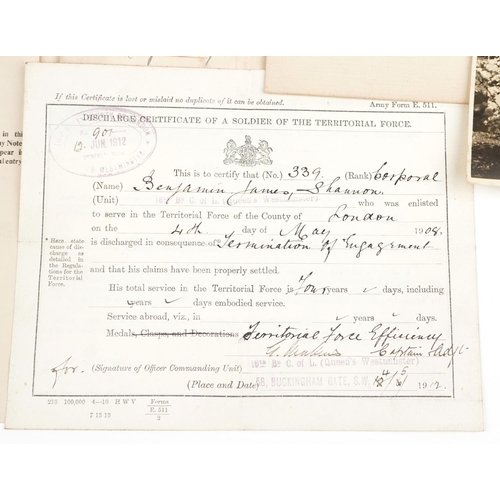 If this Certificate is lost or mislaid no duplicate of it can be obtained.
Army Form E. 511.
DISCHARGE CERTIFICATE OF A SOLDIER OF THE TERRITORIAL FORCE.
901
13 JUN 1912
WESTMINSTER
This is to certify that (No.) 339 (Rank) Corporal
(Name) Benjamin James Shannon
(Unit) 16th Bn C. of L. (Queen's Westminster) who was enlisted
to serve in the Territorial Force of the County of London
on the 4th day of May 1908.
is discharged in consequence of* Termination of Engagement
* Here state
cause of dis-
charge as
detailed in
the Regula-
tions for the
Territorial
Force.
and that his claims have been properly settled.
His total service in the Territorial Force is Four years days, including
years days embodied service.
Service abroad, viz., in years days.
Medals, Clasps, and Decorations Territorial Force Efficiency
Captain & Adjt
for. (Signature of Officer Commanding Unit) 16th Bn C. of L. (Queen's Westminster)
(Place and Date) 58, BUCKINGHAM GATE, S.W. 4/5 1912.
213 100,000 4—10 H W V Forms
E. 511
2
in this
ay Note
pear is
al entry